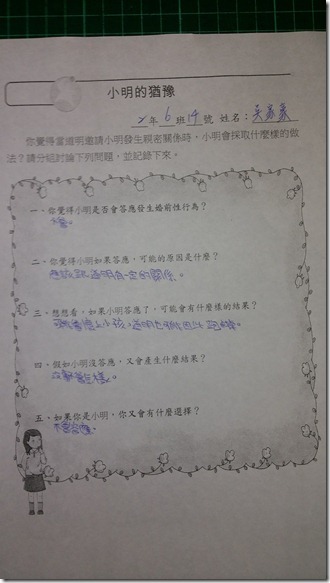 小明的猶豫
2年6班14號 姓名：吳
你覺得當道明邀請小明發生親密關係時，小明會採取什麼樣的做
法？請分組討論下列問題，並記錄下來。
一、你覺得小明是否會答應發生婚前性行為？
不會。
二、你覺得小明如果答應，可能的原因是什麼？
想試跟道明有一定的關係。
三、想想看，如果小明答應了，可能會有什麼樣的結果？
可能會懷上小孩，道明也
四、假如小明沒答應，又會產生什麼結果？
五、如果你是小明，你又會有什麼選擇？
不會答應。